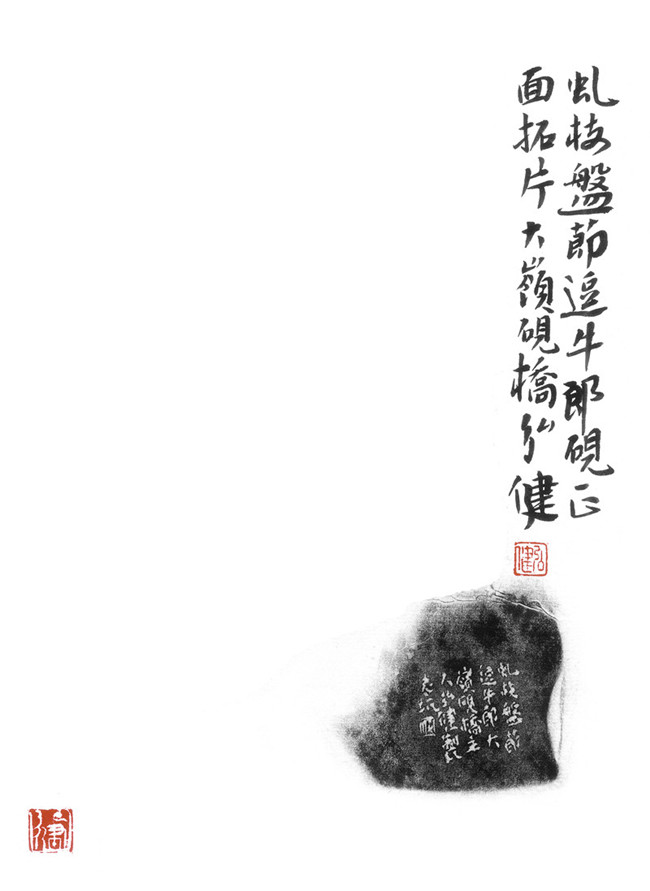 虬枝盤節逗牛郎硯正
面拓片大嶺硯橋弘健
弘健
虬枝盤節
逗牛郎大
嶺硯橋主
人弘健製